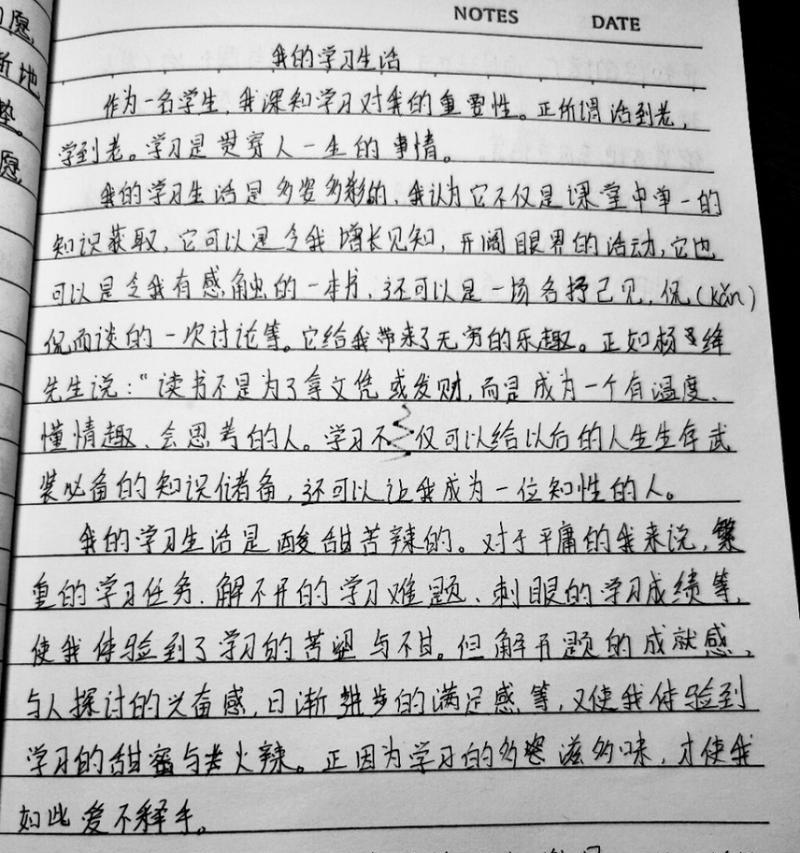 NOTES DATE
我的学习生活
作为一名学生,我深知学习对我的重要性。正所谓活到老,
学到老。学习是贯穿人一生的事情。
我的学习生活是多姿多彩的,我认为它不仅是课堂中单一的
知识获取,它可以是令我增长见知,开阔眼界的活动,它也
可以是令我有感触的一本书,还可以是一场各抒己见,侃(kǎn)
侃而谈的一次讨论等。它给我带来了无穷的乐趣。正如杨绛
先生说:“读书不是为了拿文凭或发财,而是成为一个有温度、
懂情趣、会思考的人。学习不仅可以给以后的人生生存武
装必备的知识储备,还可以让我成为一位知性的人。
我的学习生活是酸甜苦辣的。对于平庸的我来说,繁
重的学习任务、解不开的学习难题、刺眼的学习成绩等,
使我体验到了学习的苦涩与不甘。但解开题的成就感,
与人探讨的兴奋感,日渐进步的满足感等,又使我体验到
学习的甜蜜与火辣。正因为学习的多滋多味,才使我
如此爱不释手。
愿,
新地
愿,